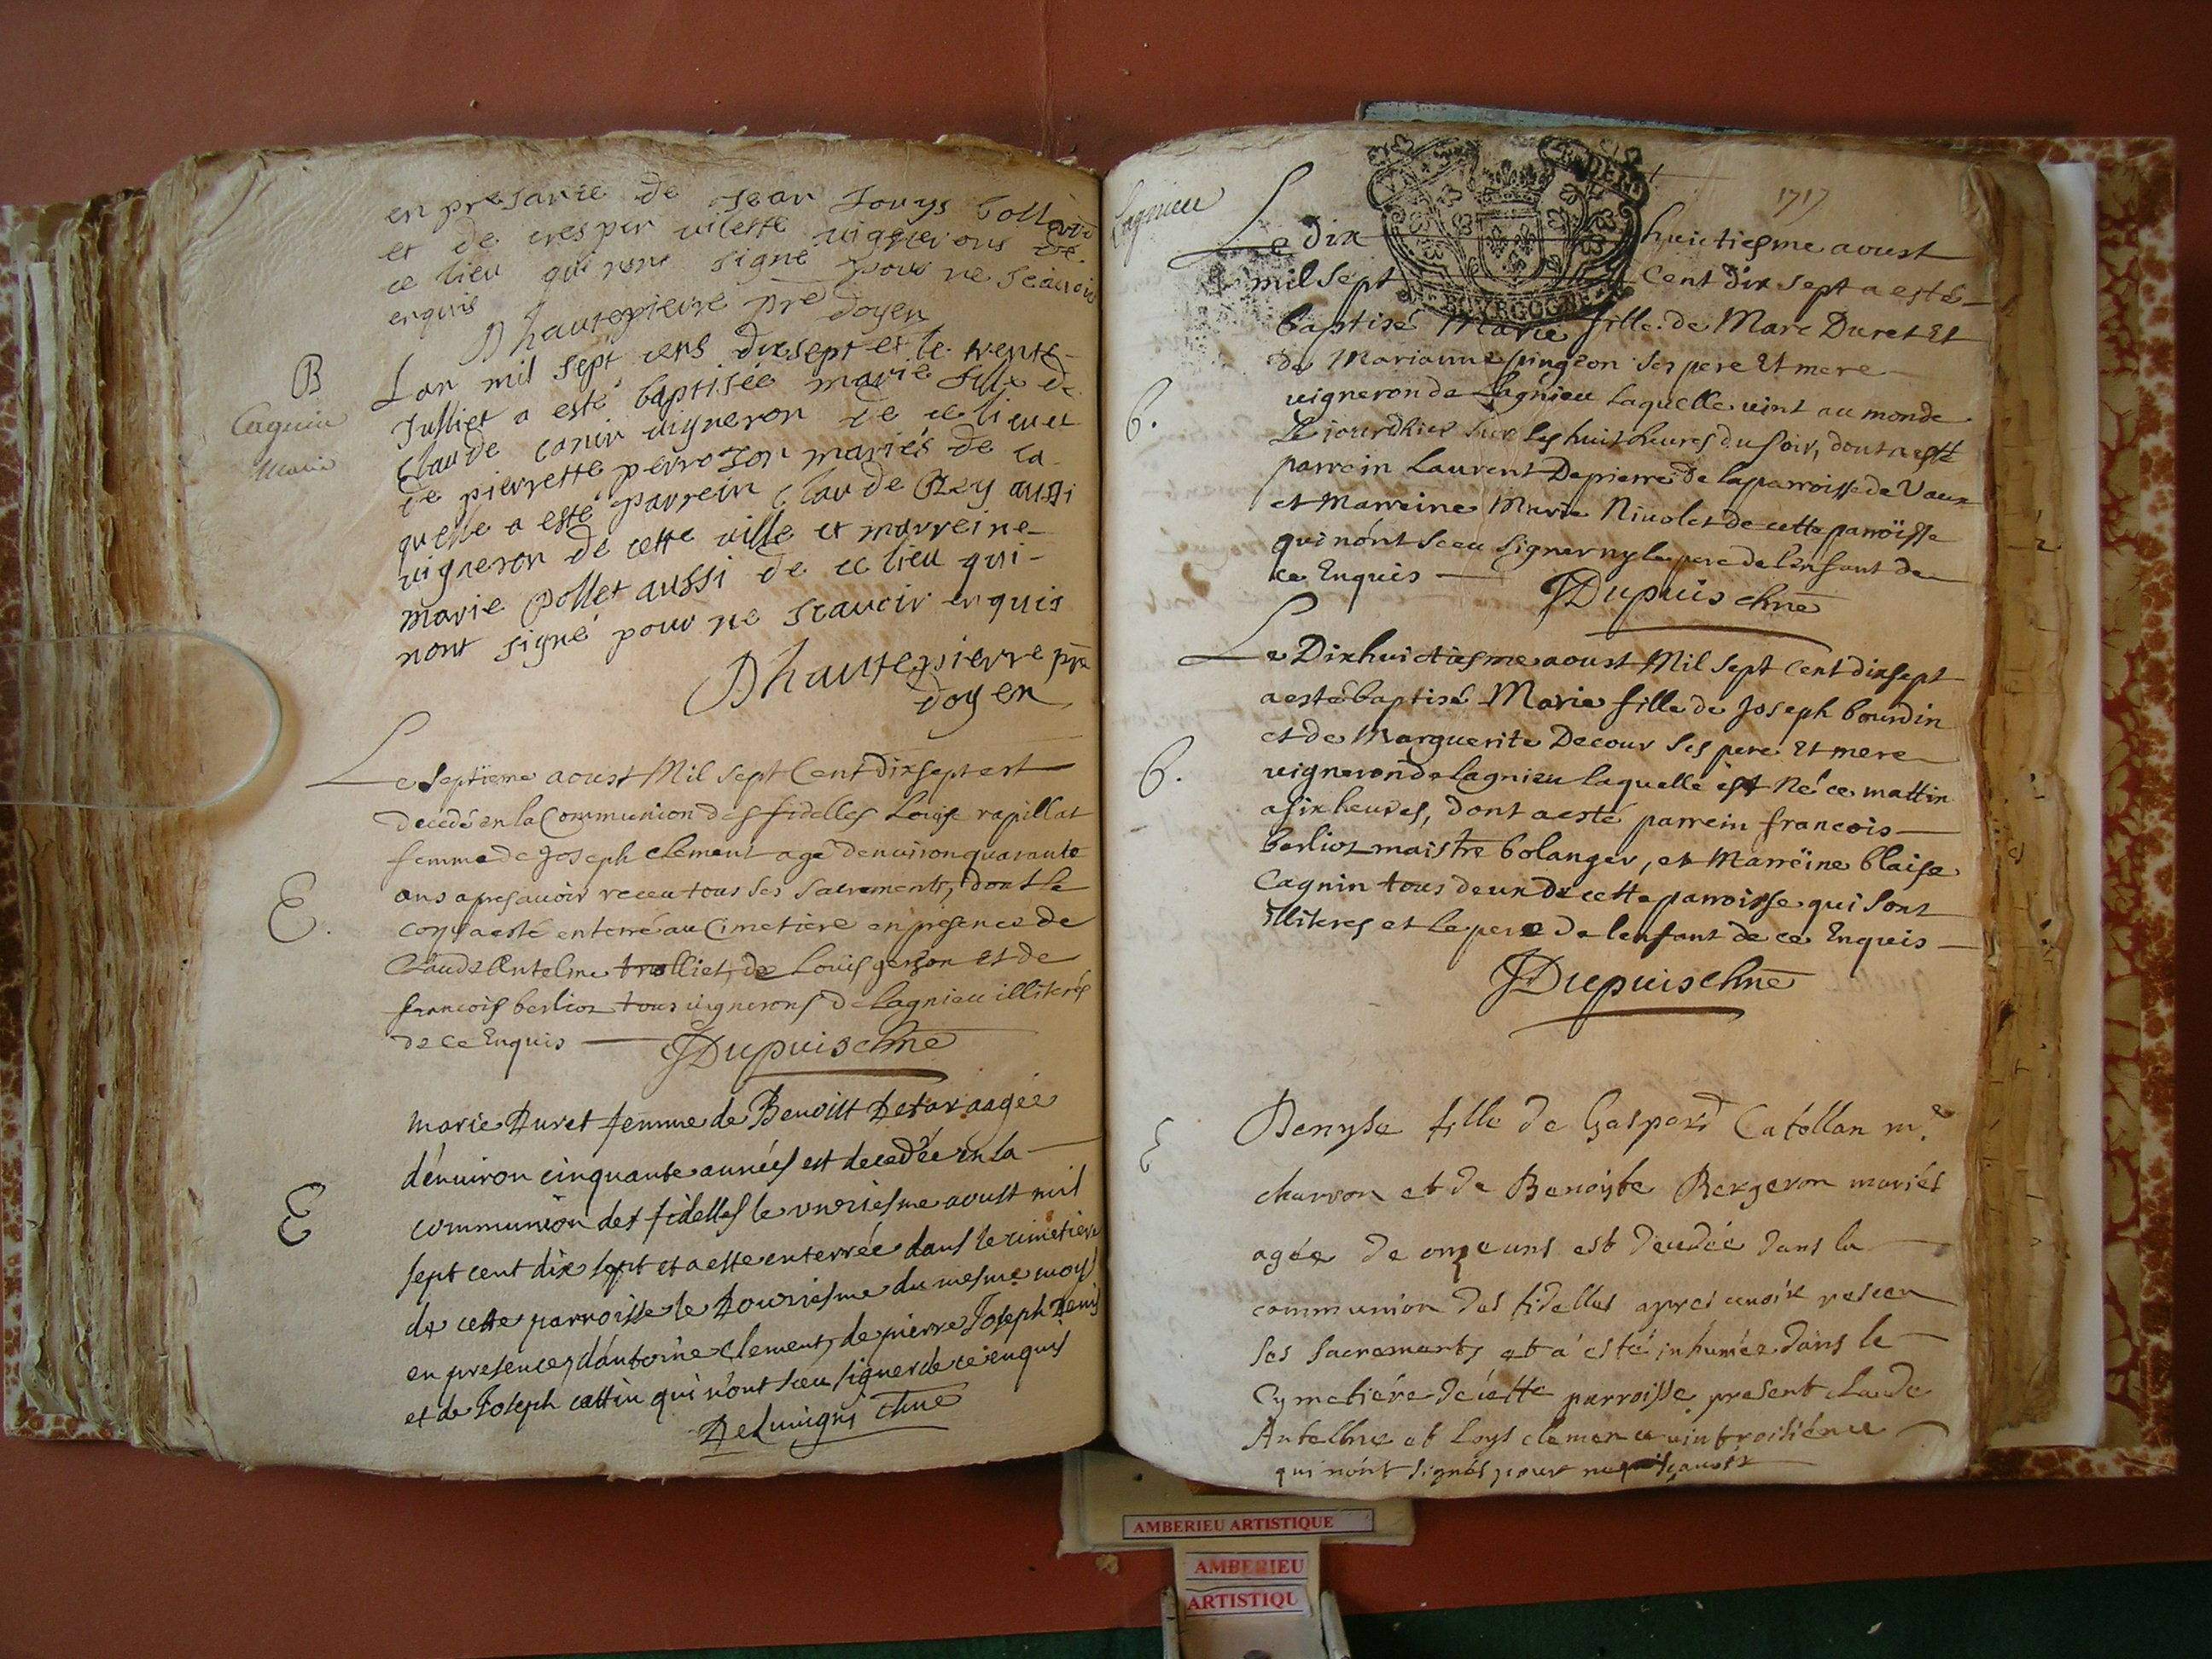 en presance de Jean Louys
et de crespin vilette vignerons de
ce lieu qui nont signé pour ne scavoir
enquis
Dhautepierre pre doyen
B
Lan mil sept cens dixsept et le trente
Caguin
Marie
Julliet a esté baptisée marie fille de
Claude canin vigneron de ce lieu et
de pierrette perrozon mariés de la
quelle a esté parrein Claude Rey aussi
vigneron de cette ville et marreine
marie Pollet aussi de ce lieu qui
nont signé pour ne scavoir enquis
Dhautepierre pre
doyen
Le Septieme aoust Mil Sept Cent dix sept est
decedé en la Communion des fidelles Loüise rapillat
femme de Joseph clement agé denviron quarante
ans apres avoir receu tous ses sacrements, dont le
E.
corps a esté enterré au Cimetiere en presence de
Claude Antelme trolliet, de Loüis gerson et de
francois berlioz tous vignerons de Lagnieu illiterés
de ce Enquis
JDupuis chne
marie Duret femme de Benoist aagée
d'environ cinquante années est decedée en la
E
communion des fidelles le unziesme aoust mil
sept cent dix sept et a esté enterrée dans le cimetiere
de cette parroisse le Douziesme du mesme moys
en presence d'antoine clement, de pierre Joseph Denis
et de Joseph cattin qui n'ont sceu signer de ce enquis
DeLuvigny chne
Lagnieu
1717
Le dix huictiesme aoust
mil Sept Cent dix sept a esté
BOURGOGNE
baptisé Marie fille de Marc Duret Et
de Marianne pingeon ses pere Et mere
vigneron de Lagnieu laquelle vint au monde
6.
Le jourdhier sur les huit heures du soir, dont a esté
parrein Laurent Depierre de la parroisse de Vaux
et Marreine Marie Nivolet de cette parroisse
qui n'ont sceu signer ny le pere de l'enfant de
ce Enquis
JDupuis chne
Le Dixhuictiesme aoust Mil Sept Cent dixsept
a esté baptisé Marie fille de Joseph bourdin
et de Marguerite Decour ses pere Et mere
6.
vigneron de Lagnieu laquelle est Né ce mattin
a six heures, dont a esté parrein francois
berlioz maistre bolanger, et Marreine blaise
Cagnin tous deux de cette parroisse qui sont
illiteres et le pere de lenfant de ce Enquis
JDupuis chne
Denyse fille de Gaspard Catollan me
E
charron et de Benoiste Bergeron mariés
agée de onze ans est decedée dans la
communion des fidelles apres avoir receu
ses sacrements et a esté inhumée dans le
Cymetiére de cette parroisse present claude
Antelme et Loys clemence
qui n'ont signés pour ne scavoir
AMBERIEU ARTISTIQUE
AMBERIEU
ARTISTIQU